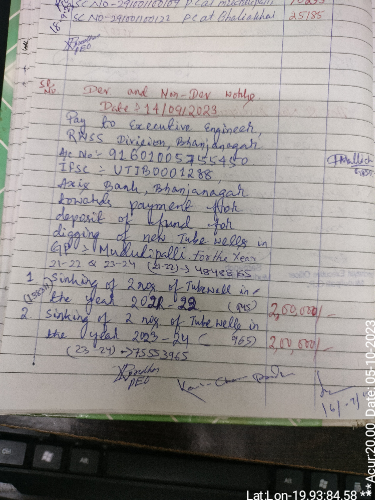 SC NO-29100100109 PC at
SC NO-29100100122 PC at Ghaliakhai 25185
PEO
Sl. No
Dev and Non-Dev works
Date :- 14/09/2023
Pay to Executive Engineer,
RWSS Division, Bhanjanagar
A/c No:- 91601005755450
IFSC :- UTIB0001288
Axis Bank, Bhanjanagar
towards payment for
deposit of fund for
digging of new Tube wells in
GP :- Mundulipalli for the Year
21-22 & 23-24 (21-22) → 48488165
1 Sinking of 2 nos of Tubewell in
the year 2021-22 2,00,000/-
2 Sinking of 2 nos of Tube wells in
the year 2023-24 2,00,000/-
(23-24) → 75553965
PEO
Lat:Lon-19.93:84.58 **Acur:20.00 Date:05-10-2023